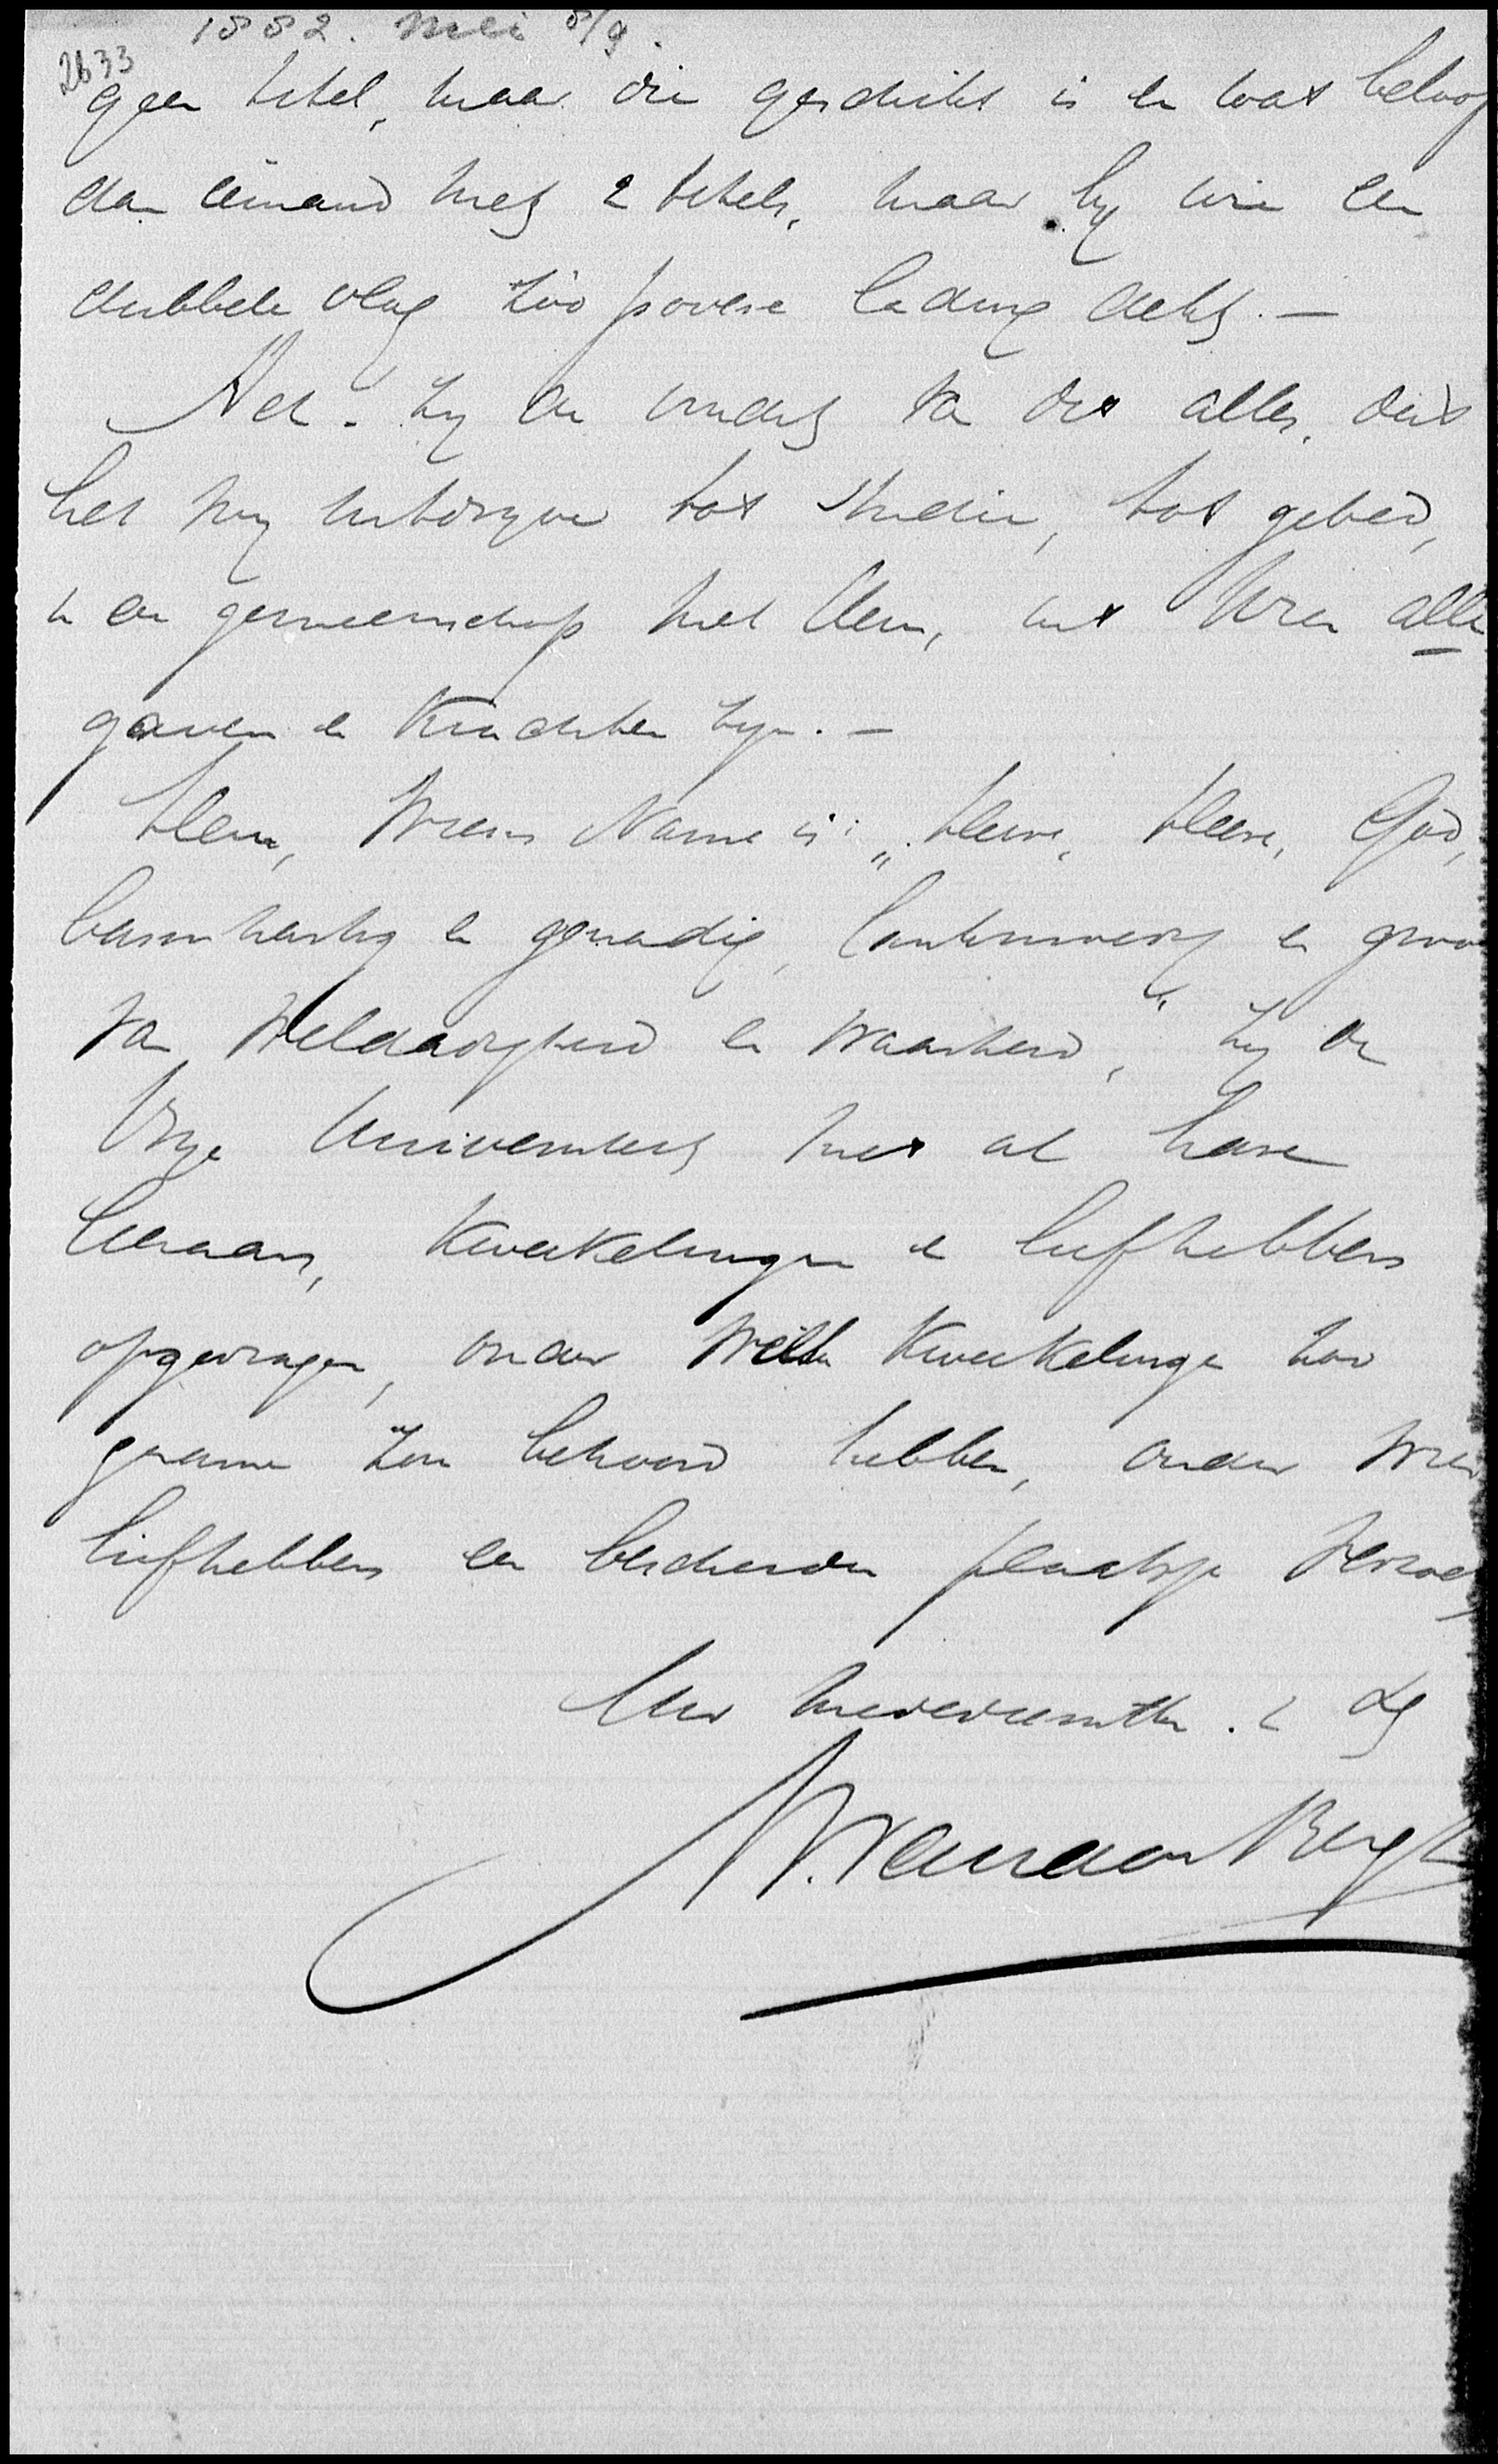 1882. Mei 8/9.
2633
geen titel, maar die geschikt is en wat beloof
dan iemand met 2 titels, maar bij wie een
dubbele vlag zóó povere lading dekt. —
Ach. zij de vrucht van dit alles, dat
het mij uitdrijve tot studie, tot gebed,
in en gemeenschap met Hem, uit Wien alle
gaven en krachten zijn. —
Hem, Wiens Name is: „Heere, Heere, God,
barmhartig en genadig, lankmoedig en groo
van Weldadigheid en Waarheid," zij de
Vrije Universiteit met al hare
leeraars, kweekelingen en liefhebbers
opgedragen, onder Wellke kweekelingen zoo
gaarne zou behoord hebben, onder Wier
liefhebbers een bescheiden plaatsje verzoek
Uw mededienstkn.